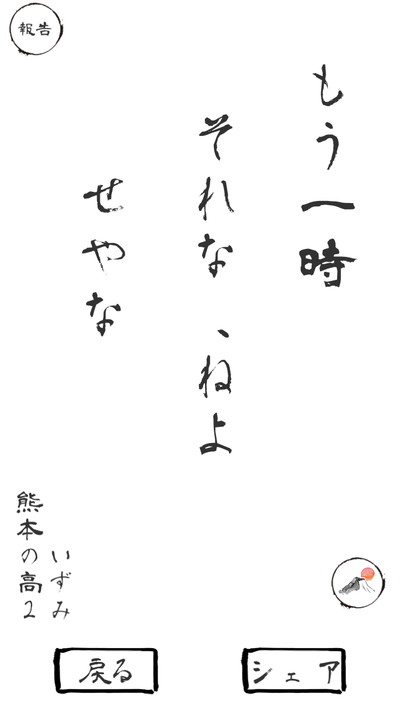 報告
もう一時
それな、ねよ
せやな
いずみ
熊本の高2
戻る
シェア